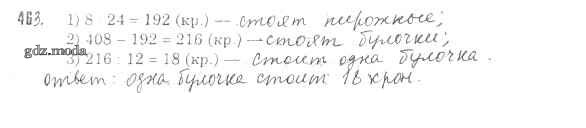 463. 1) 8 · 24 = 192 (кр.) — стоят пирожные;
2) 408 – 192 = 216 (кр.) — стоят булочки;
gdz.moda
3) 216 : 12 = 18 (кр.) — стоит одна булочка.
ответ: одна булочка стоит 18 крон.